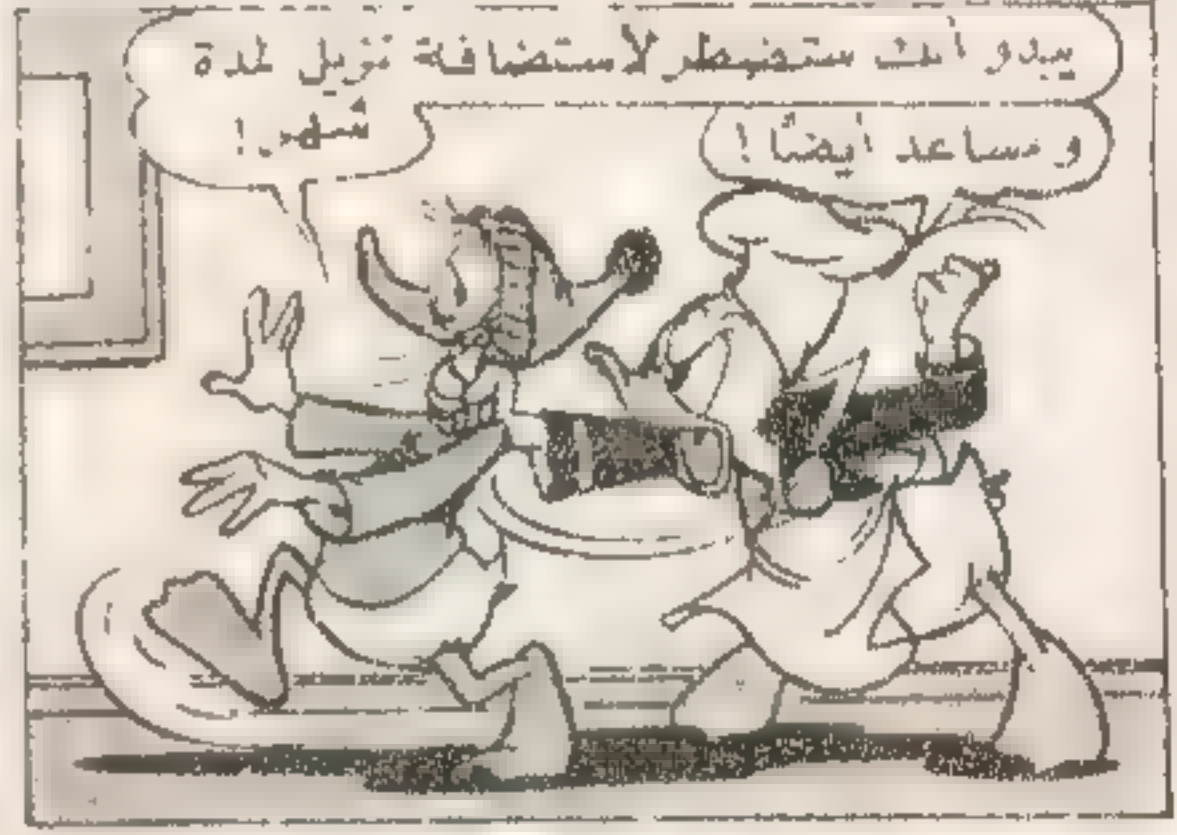 يبدو أنك ستضطر لأستضافة نزيل لمدة
شهر!
و مساعد أيضًا!